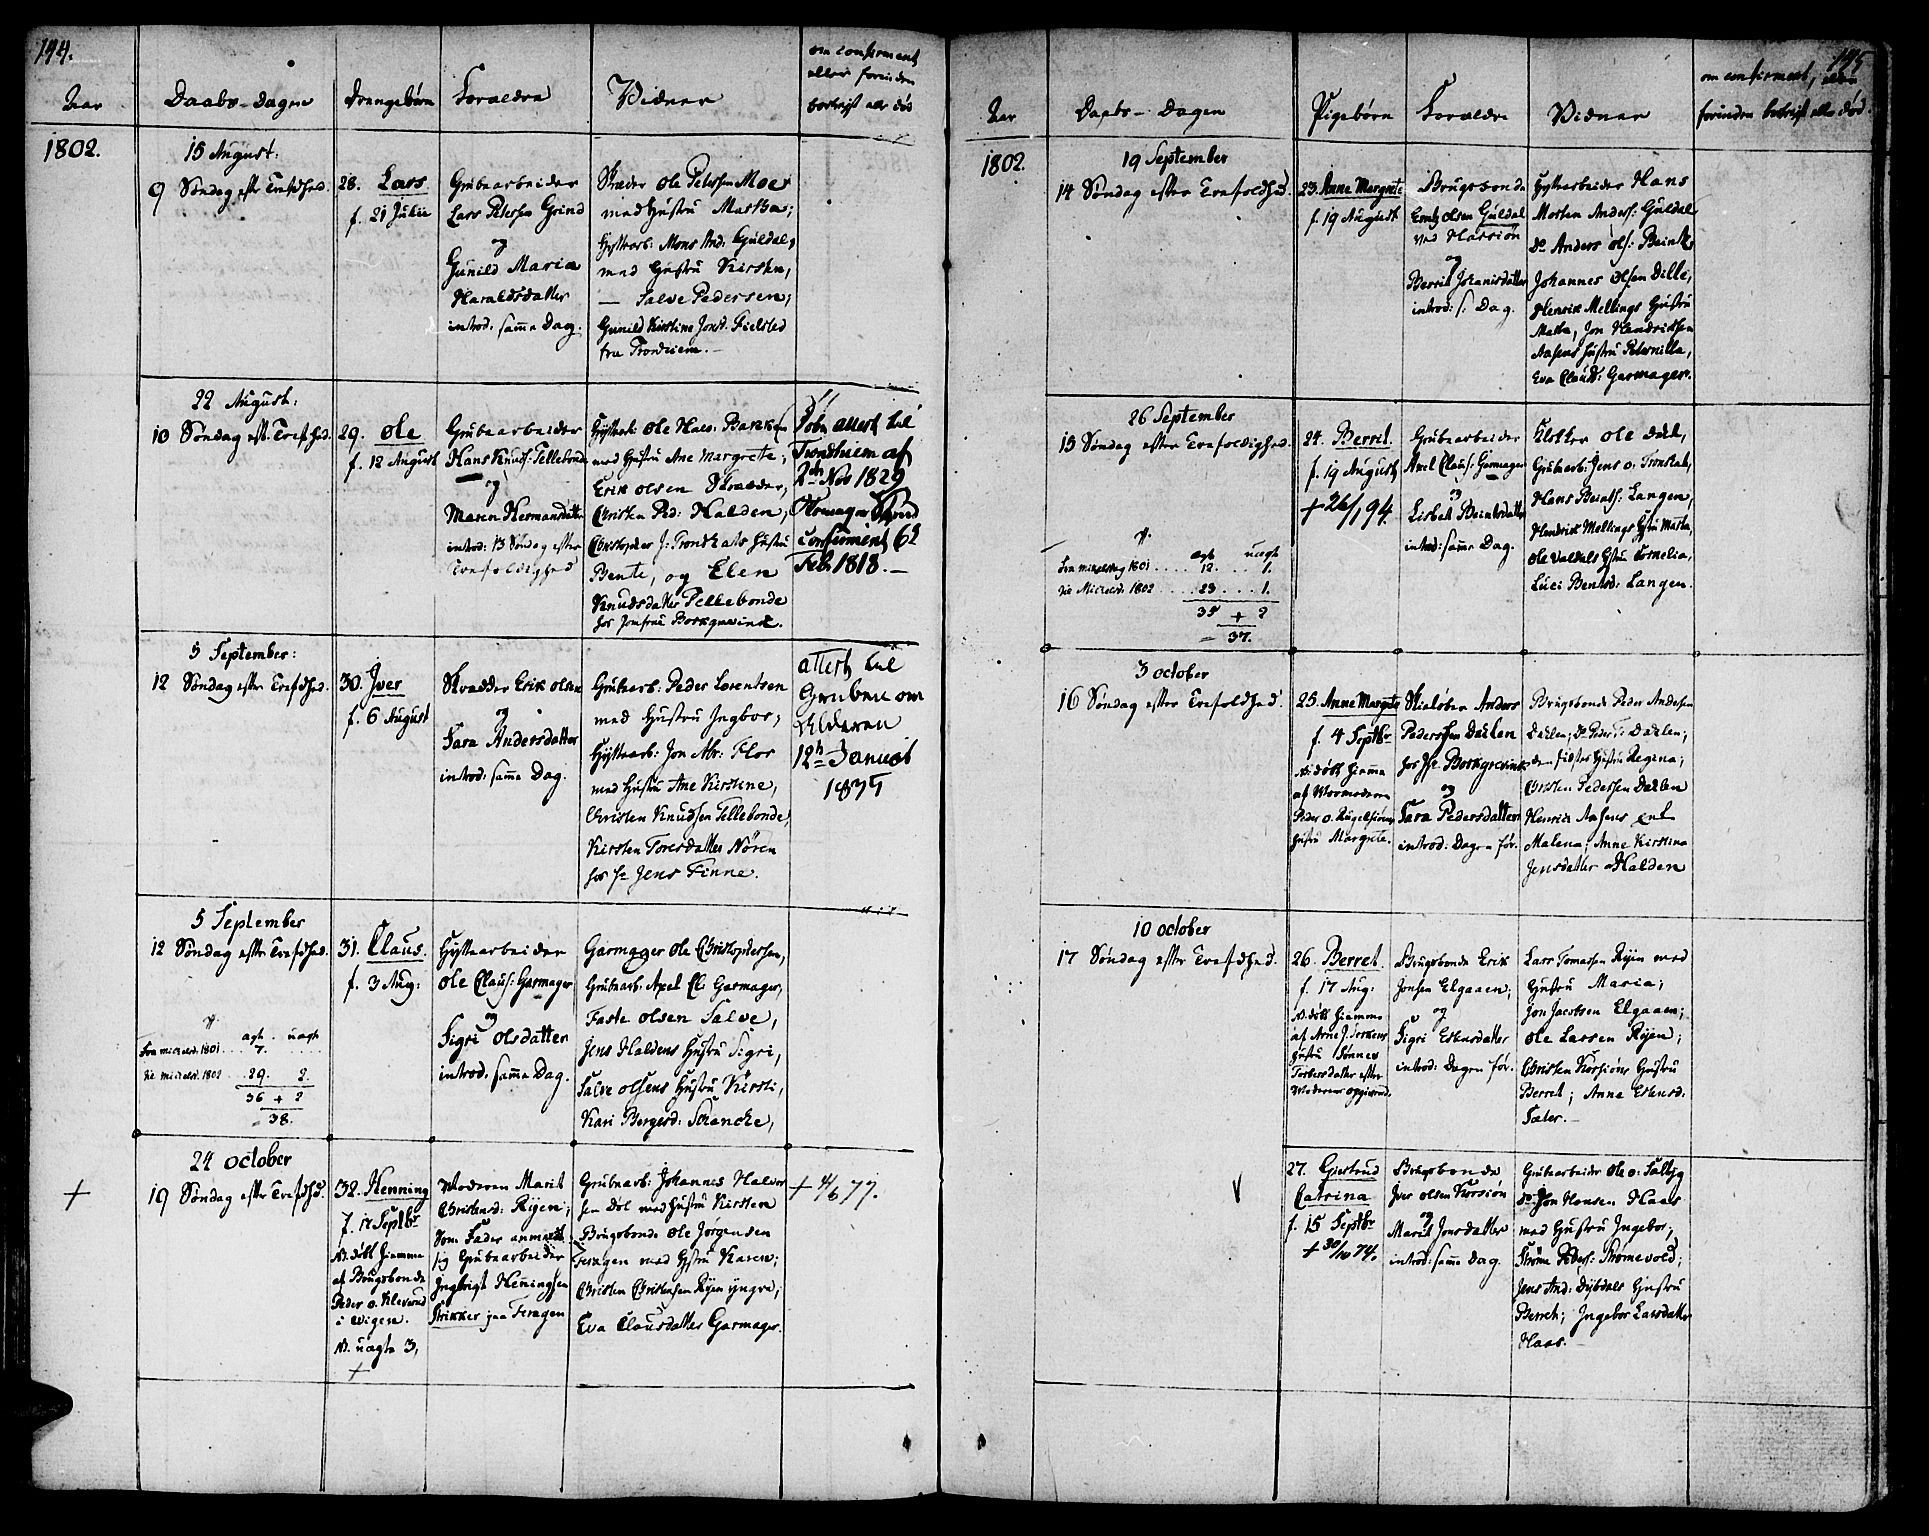 144.
Aar
Daabs-Dagen
Drengebørn
Forældre
Vidner
om confirment
eller forinden
bortrejst eller død
1802.
15 August:
9 Søndag eftr Trefdhed.
28. Lars
f. 21 Julii
Grubearbeider
Lars Petersen Grind
og
Gunild Maria
Haraldsdatter
introd: samme Dag.
Skræder Ole Petersen Moe
med Hustru Martha;
Hyttearb: Mons And: Guldal,
med Hustru Kirsten,
— Salve Pedersen;
Gunild Kirstine Jonsd. Fielsted
fra Trondhiem.—
22 August:
10 Søndag eft. Trefhed.
29. Ole
f. 12 August
Grubearbeider
Hans Knuds: Tellebonde
og
Maren Hermansdatter
introd: 13 Søndag efter
Trefoldighed
Hyttearb: Ole Hans: Bakken
med Hustru Ane Margrete;
Erik Olsen Skræder,
Christen Ped: Halden,
Christopher J: Trondsats Hustru
Bente, og Elen
Knudsdatter Tellebonde
hos Jomfrue Borkgrevink.
Døbe attest til
Trondhiem af
2den Nov 1829
confirment
Feb. 1818.—
5 September:
12 Søndag eftr Trefdhed.
30. Iver
f. 6 August
Skrædder Erik Olsen
og
Sara Andersdatter
introd: samme Dag.
Grubearb: Peder Lorentsen
med Hustru Ingbor;
Hyttearb: Jon Abr: Flor
med Hustru Ane Kirstine,
Christen Knudsen Tellebonde,
Kirsten Toresdatter Nören
hos Hr Jens Finne.
attest til
Gruben om
Alderen
12te Januar
1835
5 September
12 Søndag eftr Trefdhed.
31. Claus.
f. 3 Aug:
Hyttearbeider
Ole Claus: Garmager
og
Sigri Olsdatter
introd: samme Dag.
Garmager Ole Christophersen,
Grubearb: Axel Cl: Garmager,
Faste Olsen Salve,
Jens Haldens Hustru Sigri,
Salve Olsens Hustru Kirsti,
Kari Bergersd: Schancke,
ægt. uægt
fra michelsd. 1801 . . . 7. . . . .
til Michelsd. 1802 . . 29. 2.
36 + 2
= 38.
24 October
19 Søndag eftr Trefdhd.
+
32. Henning
f. 17 Septbr
N. døbt hiemme
af Brugsbonde
Peder O. Klevud
i Wigen.
N. uægte 3,
+
Moderen Marit
Christensd: Ryen;
Som Fader anmeldt
sig Grubearbeider
Ingbrigt Henningsen
Strikker paa Feragen
Grubearb: Johannes Halvor
sen Döl med Hustru Kirsten
Brugsbonde Ole Jörgensen
Feragen med Hstru Karen;
Christen Christensen Ryen yngre,
Eva Clausdatter Garmager.
+ 4/6 77.
145
Aar
Daabs-Dagen
Pigebørn
Forældre
Vidner
om confirment, eller
forinden bortrejst eller død.
1802.
19 September
14 Söndag efter Trefoldhed.
23. Anne Margrete
f. 19 August
Brugsbonde
Erntz Olsen Guldal
ved Harsiön
og
Berrit Johanisdatter
introd: s. Dag.
Hyttearbeider Hans
Morten Anders: Guldal
Do Anders Ols: Beintz
Johannes Olsen Dille,
Henrik Mellings Hustru
Marta, Jon Hendriksen
Aasens Hustru Peternilla,
Eva Clausd: Garmager.
26 September
15 Søndag efter Trefoldighed.
24. Berrit
f. 19 August
+ 26/1 94.
Grubearbeider
Axel Claus: Garmager
og
Lisbet Beintsdatter
introd: samme Dag.
Klokker Ole Dahl,
Grubearb: Jens O: Tronsat,
Hans Beints: Langen,
Hendrik Mellings Hstru Marta,
Ole Valdals Hstru Cornelia,
Luci Bentsd: Langen.
ægt uægt
fra mikelsdag 1801 . . . . 12. . . 1.
til Michelsd. 1802 . . . . 23 . . . 1.
35 + 2
= 37.
3 October
16 Søndag efter Trefoldhed.
25. Anne Margrete
f. 4 Septbr
N. døbt hiemme
af Mormoderen
Peder O. Rugelsiöns
Hustru Margrete.
Skieløber Anders
Pedersen Dahlen
hos Hr. Borkgrevink
og
Sara Pedersdatter
introd: Dagen før.
Brugsbonde Peder Andersen
Dahlen; Do Peder T: Dahlen;
den sidstes Hustru Regina;
Christen Pedersen Dahlen
Henrik Aasens enk
Malena; Anne Kirstina
Jensdatter Halden
10 October
17 Søndag efter Trefdhed.
26. Berret
f. 17 Aug:
N. døbt hiemme
af Arne J. Korkens
Hustru Sönnev
Torbersdatter efter
Moderens opgivende.
Brugsbonde Erik
Jonsen Elgaaen;
og
Sigri Estensdatter
introd: Dagen før.
Lars Tomasen Ryen med
Hustru Maria;
Jon Jacobsen Elgaaen;
Ole Larsen Ryen;
Christen Korsiöns Hustru
Berret; Anne Estensd:
Sæter.—
V
27. Giertrud
Catrina
f. 15 Septbr
+ 30/10 74.
Brugsbonde
Iver Olsen Korsiön
og
Marit Jonsdatter
introd: samme Dag.
Grubearbeider Ole O: Galtze
Do Jon Hansen Haas
med Hustru Ingebor;
Thomæ Peders: Thomevold;
Jens And: Dybdals Hustru
Berret; Ingebor Larsdatter
Haas.—